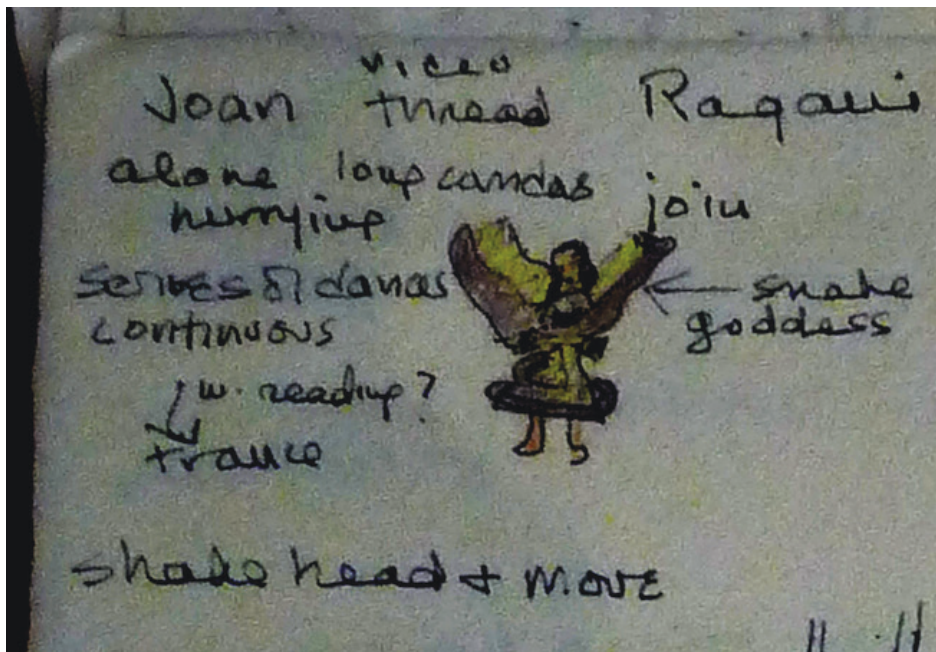 video
Joan thread Ragani
alone loup candas join
hurrying
series of danas
continuous
snake
goddess
w. reading?
trance
shake head + move